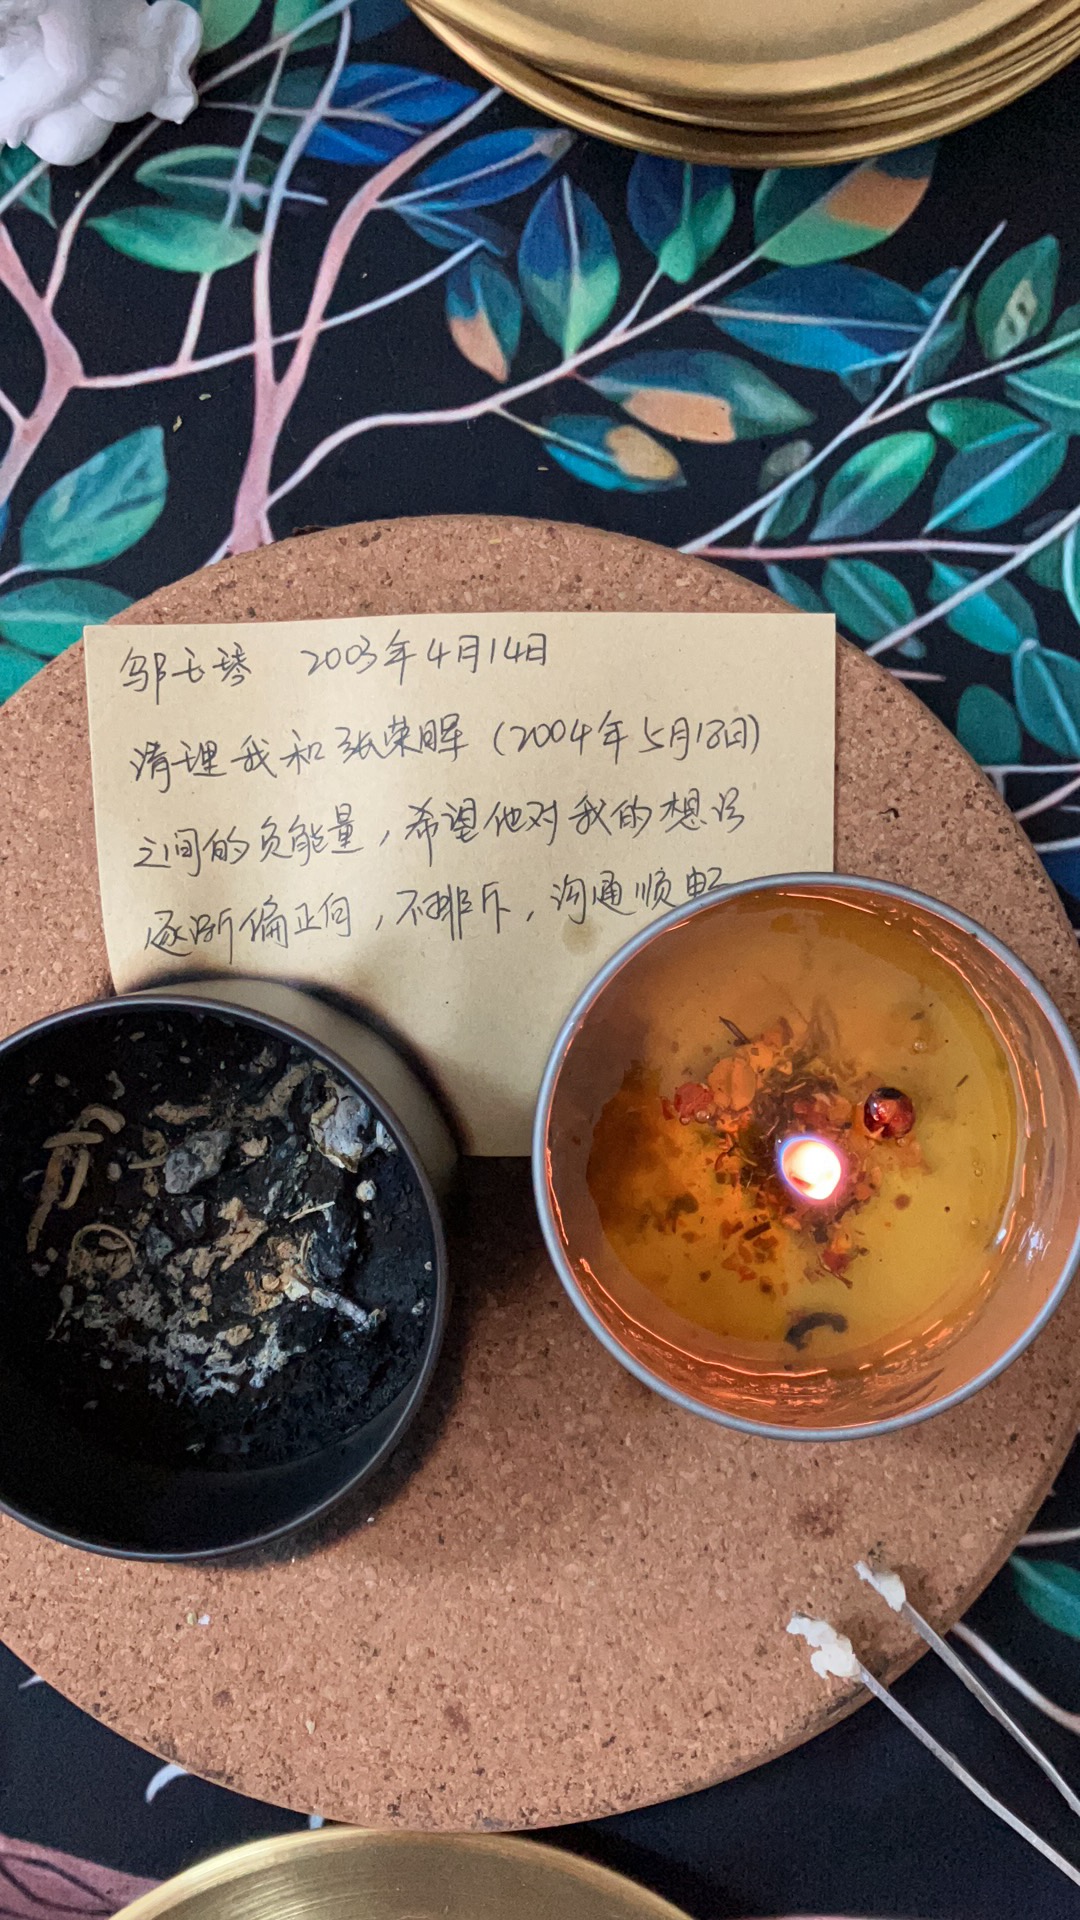 邹玉琴 2003年4月14日
清理我和张荣晖（2004年5月13日）
之间的负能量，希望他对我的想法
逐渐偏正向，不排斥，沟通顺畅